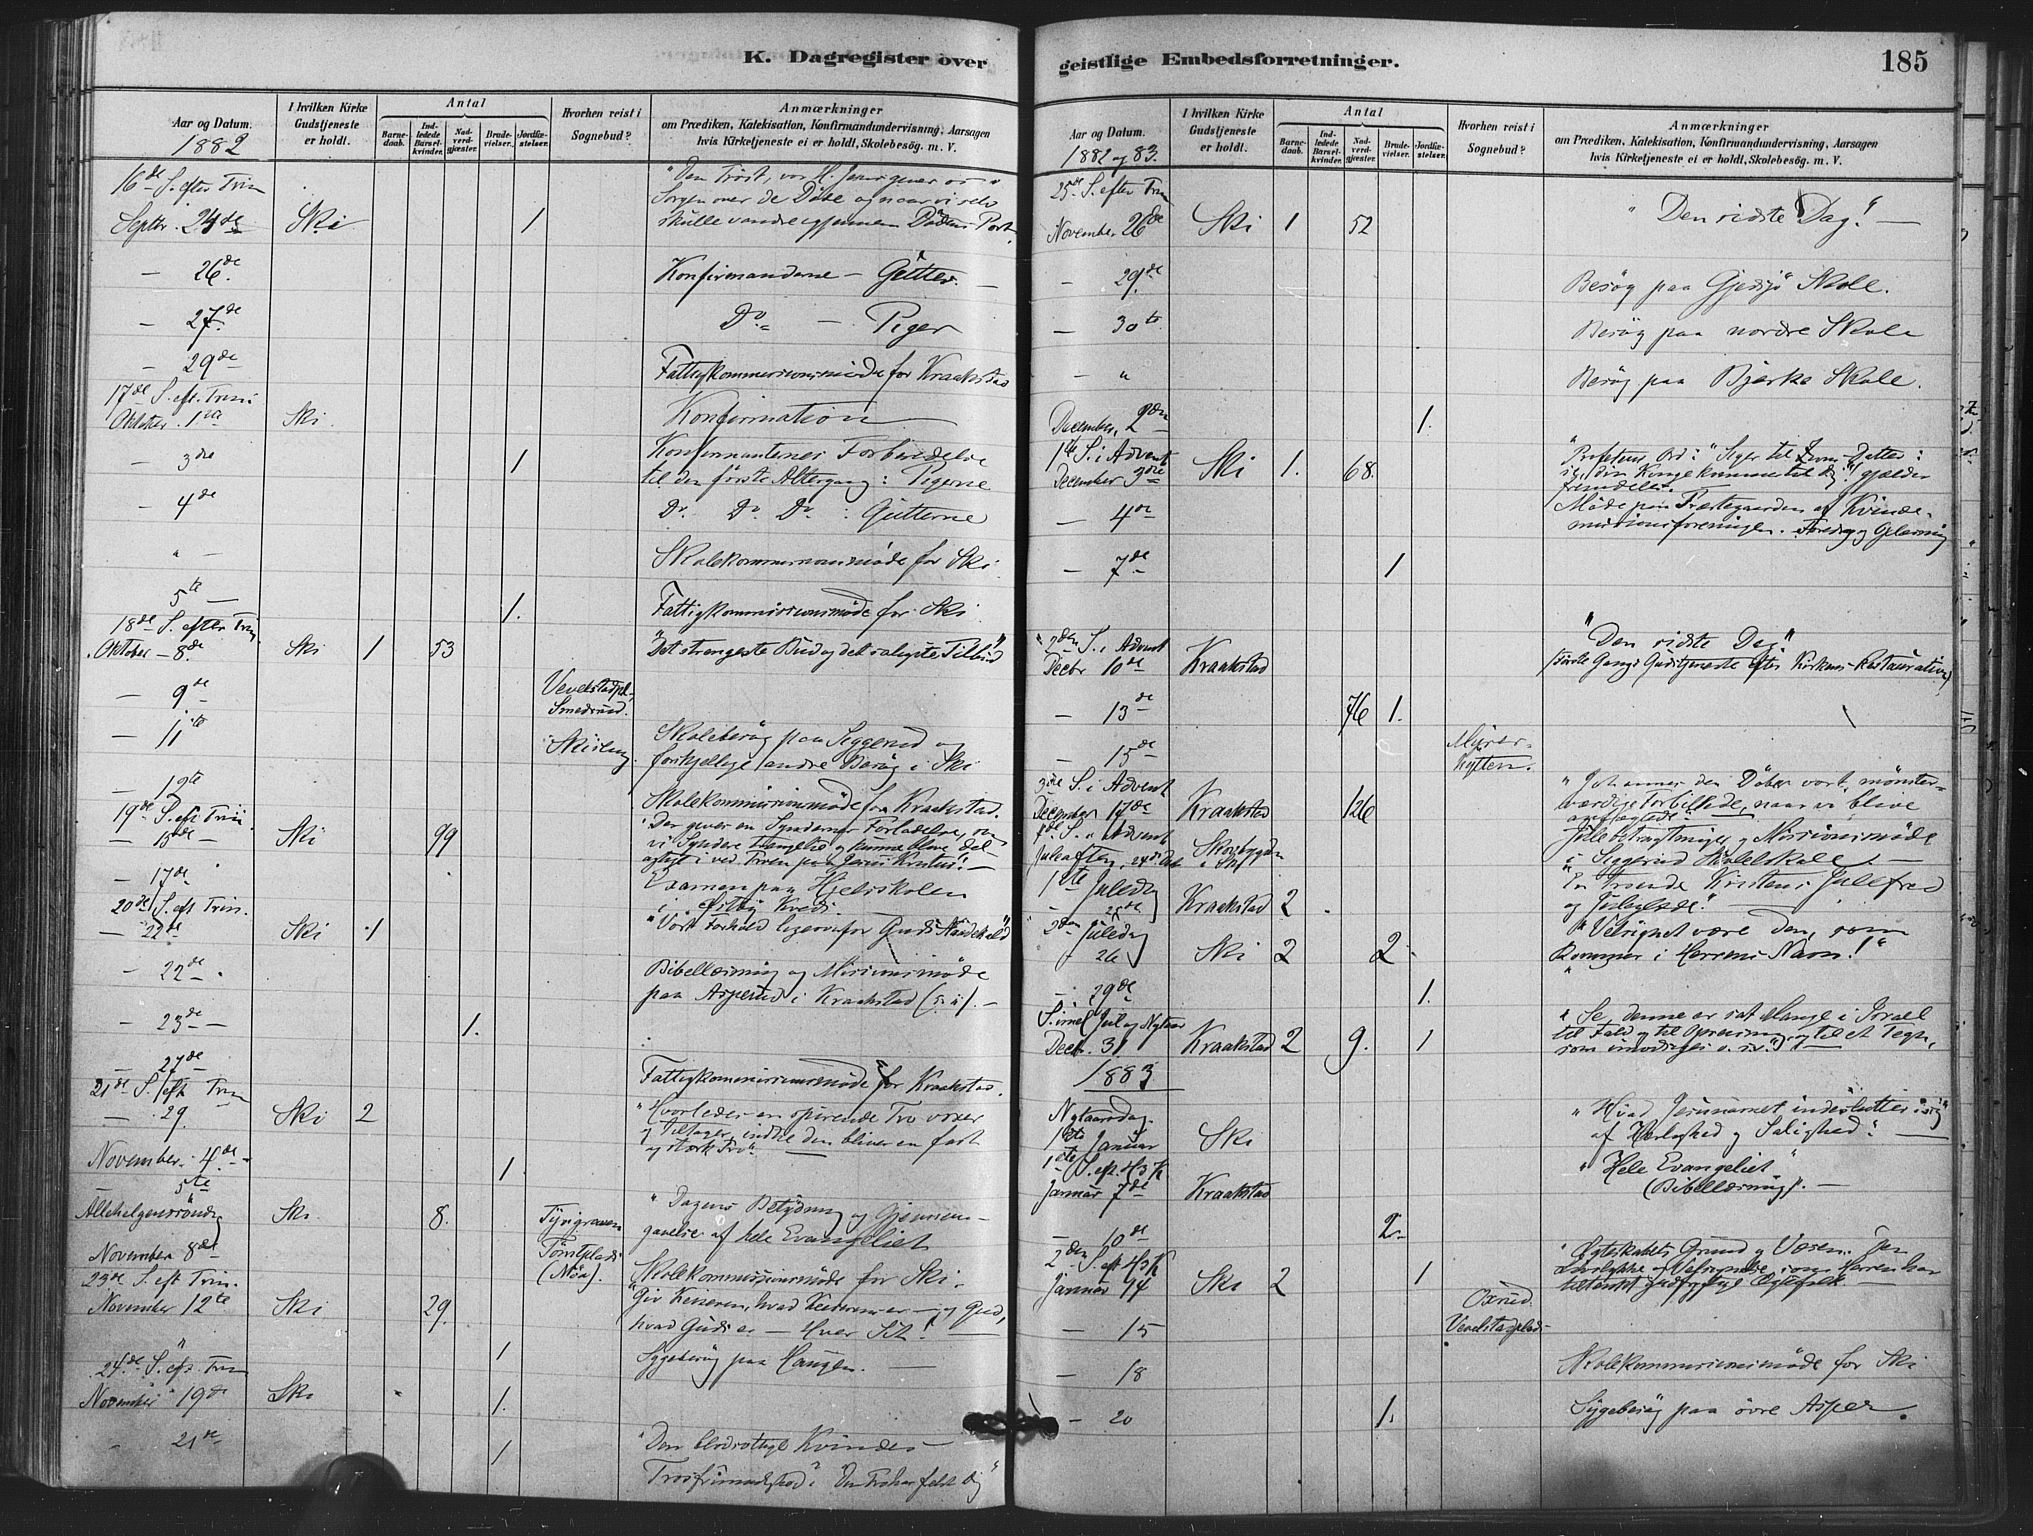 K. Dagregister over
Aar og Datum.
1882
I hvilken Kirke
Gudstjeneste
er holdt.
Antal
Barne-
daab.
Ind-
ledede
Barsel-
kvinder.
Nad-
verd-
gjæster.
Brude-
vielser.
Jordfæ-
stelser.
Hvorhen reist i
Sognebud?
Anmærkninger
om Prædiken, Katekisation, Konfirmandundervisning, Aarsagen
hvis Kirketjeneste ei er holdt, Skolebesøg. m. V.
16de S. efter Trin
Septbr. 24de Ski 1
"Den Trøst, vor H. Jesus giver os i
Sorgen over de Døde og naar vi selv
skulle vandre igjennem Dødens Port.
— 26de Konfirmanderne — Gutter. —
— 27de Do — Piger
— 29de Fattigkommissionsmøde for Kraakstad
17de S. eft. Trin.
Oktober 1ste Ski Konfirmation
— 3die 1 Konfirmanternes Forberedelse
til den første Altergang: Pigerne
— 4de Do Do Do : Gutterne
" — Skolekommissionsmøde for Ski.
5te — 1. Fattigkommissionsmøde for Ski
18de S. efter Trin.
Oktober — 8de Ski 1 53 "Det strengeste Bud og det saligste Tilbud"
— 9de Vevelstadpl.
Smedsrud.
— 11te Skoleng. Skolebesøg paa Siggerud og
forskjellige andre Besøg i Ski
— 12te Skolekommissionsmøde for Kraakstad.
19de S. eft. Trin.
— 15de Ski 99 "Der gives en Syndernes Forladelse, som
vi Syndere trænge til og kunne blive del-
agtige i ved Troen paa Jesus Kristus!" —
— 17de Examen paa Hjelsskolen
i Kreds.
20de S. eft Trin.
— 22de Ski 1 "Vort Forhold ligeoverfor Guds Naadekald"
— 22de Bibellæsning og Missionsmøde
paa Asperud i Kraakstad —
— 23de — 1.
— 27de — Fattigkommissionsmøde for Kraakstad.
21de S. eft Trin
— 29. Ski 2 "Hvorledes en spirende Tro voxer
og tiltager, indtil den bliver en fast
og stærk Tro". —
November 4de — 1.
5te
Allehelgenssøndag Ski. 8. "Dagens Betydning og Gjennem-
gaaelse af hele Evangeliet
November 8de Tømtplads
Skolekommissionsmøde for Ski.
23de S. eft Trin.
November 12te Ski 29. "Giv Keiseren, hvad Keiserens er — og Gud,
hvad Guds er — Hver Sit! —
" 1 Sygebesøg paa Haugen. —
24de S. eft. Trin
November 19de Ski 1.
21de 1 "Den blodsottige Kvindes
Trosfrimodighed": "Din Tro har frelst dig"
geistlige Embedsforretninger.
185
Aar og Datum.
1882 og 83.
I hvilken Kirke
Gudstjeneste
er holdt.
Antal
Barne-
daab.
Ind-
ledede
Barsel-
kvinder.
Nad-
verd-
gjæster.
Brude-
vielser.
Jordfæ-
stelser.
Hvorhen reist i
Sognebud?
Anmærkninger
om Prædiken, Katekisation, Konfirmandundervisning, Aarsagen
hvis Kirketjeneste ei er holdt, Skolebesøg. m. V.
25de S. efter Trin
November 26de Ski 1 52 "Den sidste Dag!" —
— 29de Besøg paa Gjedsjø Skole.
— 30te Besøg paa nordre Skole
— " Besøg paa Bjerke Skole.
December 2den 1.
1ste S. i Advent
December 3die Ski 1. 68. "Profetens Ord: "Siger til Zions Datter:
se, din Konge kommer til dig!" gjælder
fremdeles.
— 4de Møde paa Præstegaarden af Kvinde-
missionsforeningen. Foredrag og Oplæsning
— 7de 1
2den S. i Advent
Decbr 10de Kraakstad "Den sidste Dag"
(første Gangs Gudstjeneste efter Kirkens Restauration)
— 13de 76 1.
— 15de Myrer-
hytten.
3die S. i Advent
December 17de Kraakstad 126 "Johannes den Døber vort mønster-
værdige Forbillede, naar vi blive
anfægtede".
4de S. i Advent
Juleaften, 24de Dec Skovbygden
i Ski Julebetragtninger og Missionsmøde
i Siggerud Skolelokale. —
1ste Juledag
25de Kraakstad 2 "En troende Kristens Julefred
og Juleglæde". —
2den Juledag
26 Ski 2 2 "Velsignet være den, som
kommer i Herrens Navn!"
— 29de 1.
S. mel. Jul og Nytaar
Decbr. 31 Kraakstad 2 9. 1 "Se, denne er sat Mange i Israel
til Fald og til Opreisning og til et Tegn,
som imodsiges o. s. v." —
1883
Nytaarsdag
1ste Januar Ski "Hvad Jesunavnet indeslutter i sig
af Herlighed og Salighed". —
1ste S. eft. H 3 K.
Januar 7de Kraakstad "Hele Evangeliet"
(Bibellæsning). —
— 10de 2
2den S. eft H 3 K
Januar 14 Ski 2 1 "Ægteskabets Grund og Væsen. Den
Livslykke og Velsignelse, som Herren har
tiltænkt gudfrygtige Ægtefolk —
— 15 Oxrud.
Vevelstadplads.
— 18 Skolekommissionsmøde for Ski
— 20 1. Sygebesøg paa øvre Asper.